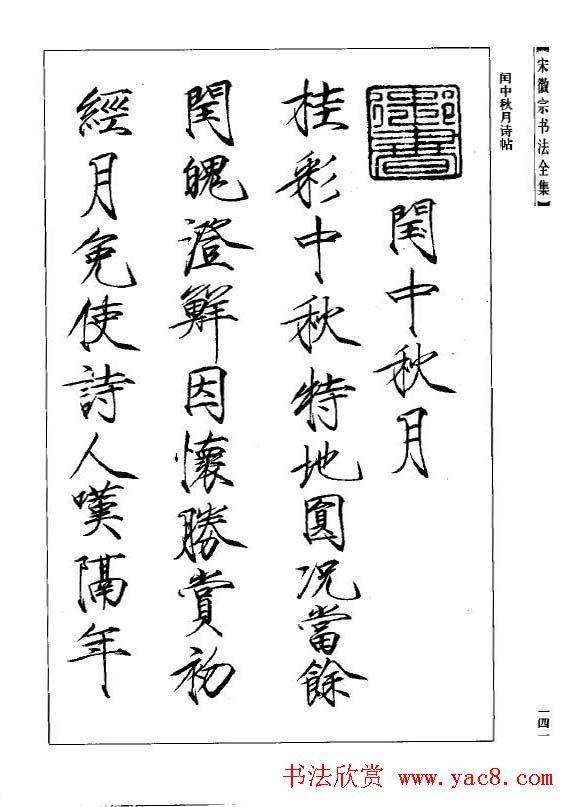 【宋徽宗书法全集】
闰中秋月诗帖
一四一
御書
閏中秋月
桂彩中秋特地圓况當餘
閏魄澄鮮因懷勝賞初
經月免使詩人嘆隔年
书法欣赏 www.yac8.com